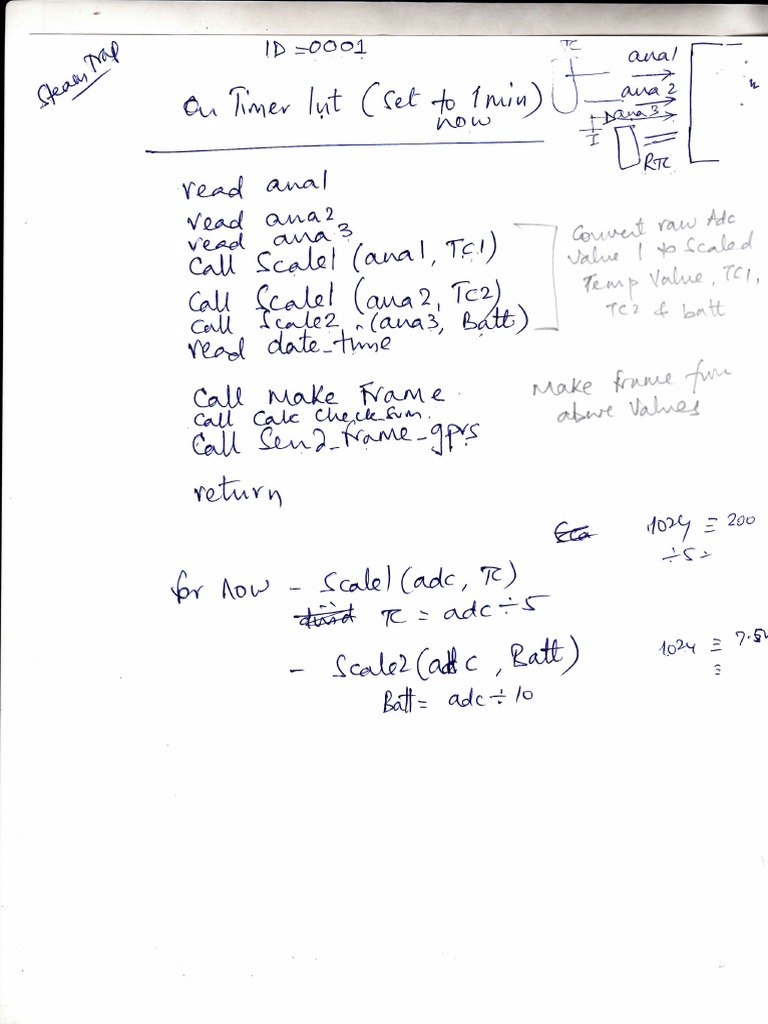 Steam Trap
ID = 0001
On Timer Int (Set to 1 min)
now
TC
ana1
ana2
ana3
RTC
read ana1
read ana2
read ana3
Call Scale1 (ana1, TC1)
Call Scale1 (ana2, TC2)
call Scale2 (ana3, Batt)
read date_time
Convert raw Adc
Value 1 to Scaled
Temp Value, TC1,
TC2 & batt
Call Make Frame
call Calc Check sum.
Call Send_frame_gprs
Make frame from
above Values
return
1024 ≡ 200
÷5=
for now - Scale1 (adc, TC)
TC = adc ÷ 5
- Scale2 (adc, Batt)
Batt = adc ÷ 10
1024 ≡ 7.5
≡